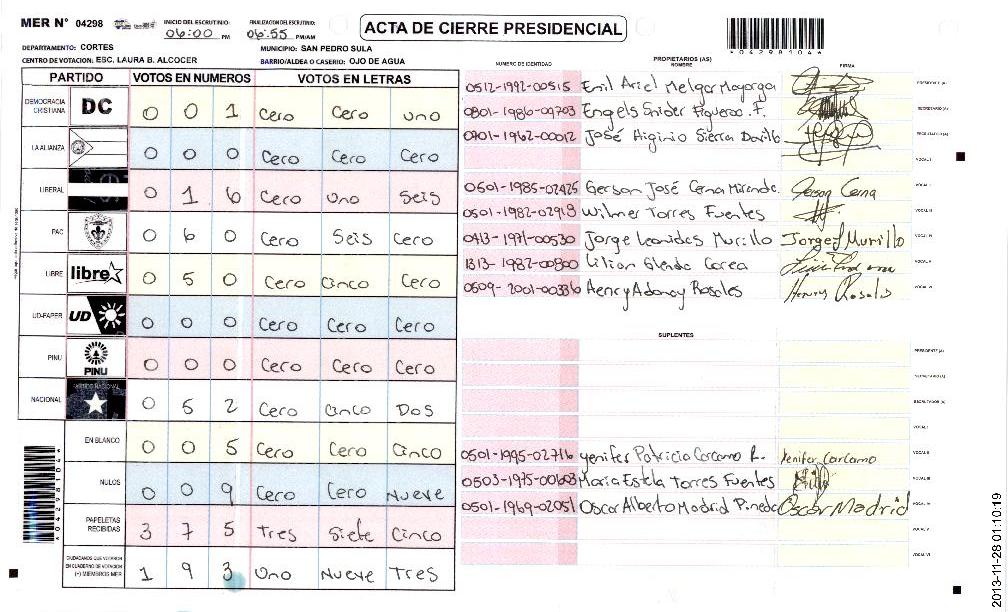 MER N° 04298
INICIO DEL ESCRUTINIO: 06:00 PM
FINALIZACION DEL ESCRUTINIO: 06:55 PM/AM
ACTA DE CIERRE PRESIDENCIAL
*04298104*
DEPARTAMENTO: CORTES
MUNICIPIO: SAN PEDRO SULA
CENTRO DE VOTACION: ESC. LAURA B. ALCOCER
BARRIO/ALDEA O CASERIO: OJO DE AGUA
PARTIDO VOTOS EN NUMEROS VOTOS EN LETRAS
DEMOCRACIA CRISTIANA DC 0 0 1 Cero Cero uno
LA ALIANZA 0 0 0 Cero Cero Cero
LIBERAL 0 1 6 Cero Uno Seis
PAC 0 6 0 Cero Seis Cero
LIBRE libre 0 5 0 Cero Cinco Cero
UD-FAPER UD 0 0 0 Cero Cero Cero
PINU PINU 0 0 0 Cero Cero Cero
NACIONAL PARTIDO NACIONAL 0 5 2 Cero Cinco Dos
EN BLANCO 0 0 5 Cero Cero Cinco
NULOS 0 0 9 Cero Cero Nueve
PAPELETAS RECIBIDAS 3 7 5 Tres Siete Cinco
CIUDADANOS QUE VOTARON EN CUADERNO DE VOTACION (+) MIEMBROS MER 1 9 3 Uno Nueve Tres
*04298104*
NUMERO DE IDENTIDAD PROPIETARIOS (AS) NOMBRE FIRMA
0512-1992-00515 Emil Ariel Melgar Mayorga PRESIDENTE (A)
0801-1986-09703 Engels Snider Figueroa. F. SECRETARIO (A)
0901-1962-00012 José Higinio Sierra
VOCAL I
0501-1985-02425 Gerson José Cerna Miranda Gerson Cerna
0501-1982-02919 Wilmer Torres Fuentes VOCAL III
0413-1971-00530 Jorge Leonides Murillo Jorge Murillo VOCAL IV
1313-1982-00800 Lilian Glenda Corea VOCAL V
0509-2001-00336 Henry Adonay Rosales Henry Rosales VOCAL VI
SUPLENTES
PRESIDENTE (A)
SECRETARIO (A)
ESCRUTADOR (A)
VOCAL I
0501-1995-02716 Yenifer Patricia Carcamo R. Yenifer Carcamo VOCAL II
0503-1975-00603 Maria Estela Torres Fuentes VOCAL III
0501-1969-02051 Oscar Alberto Madrid Pineda Oscar Madrid VOCAL IV
VOCAL V
VOCAL VI
2013-11-28 01:10:19